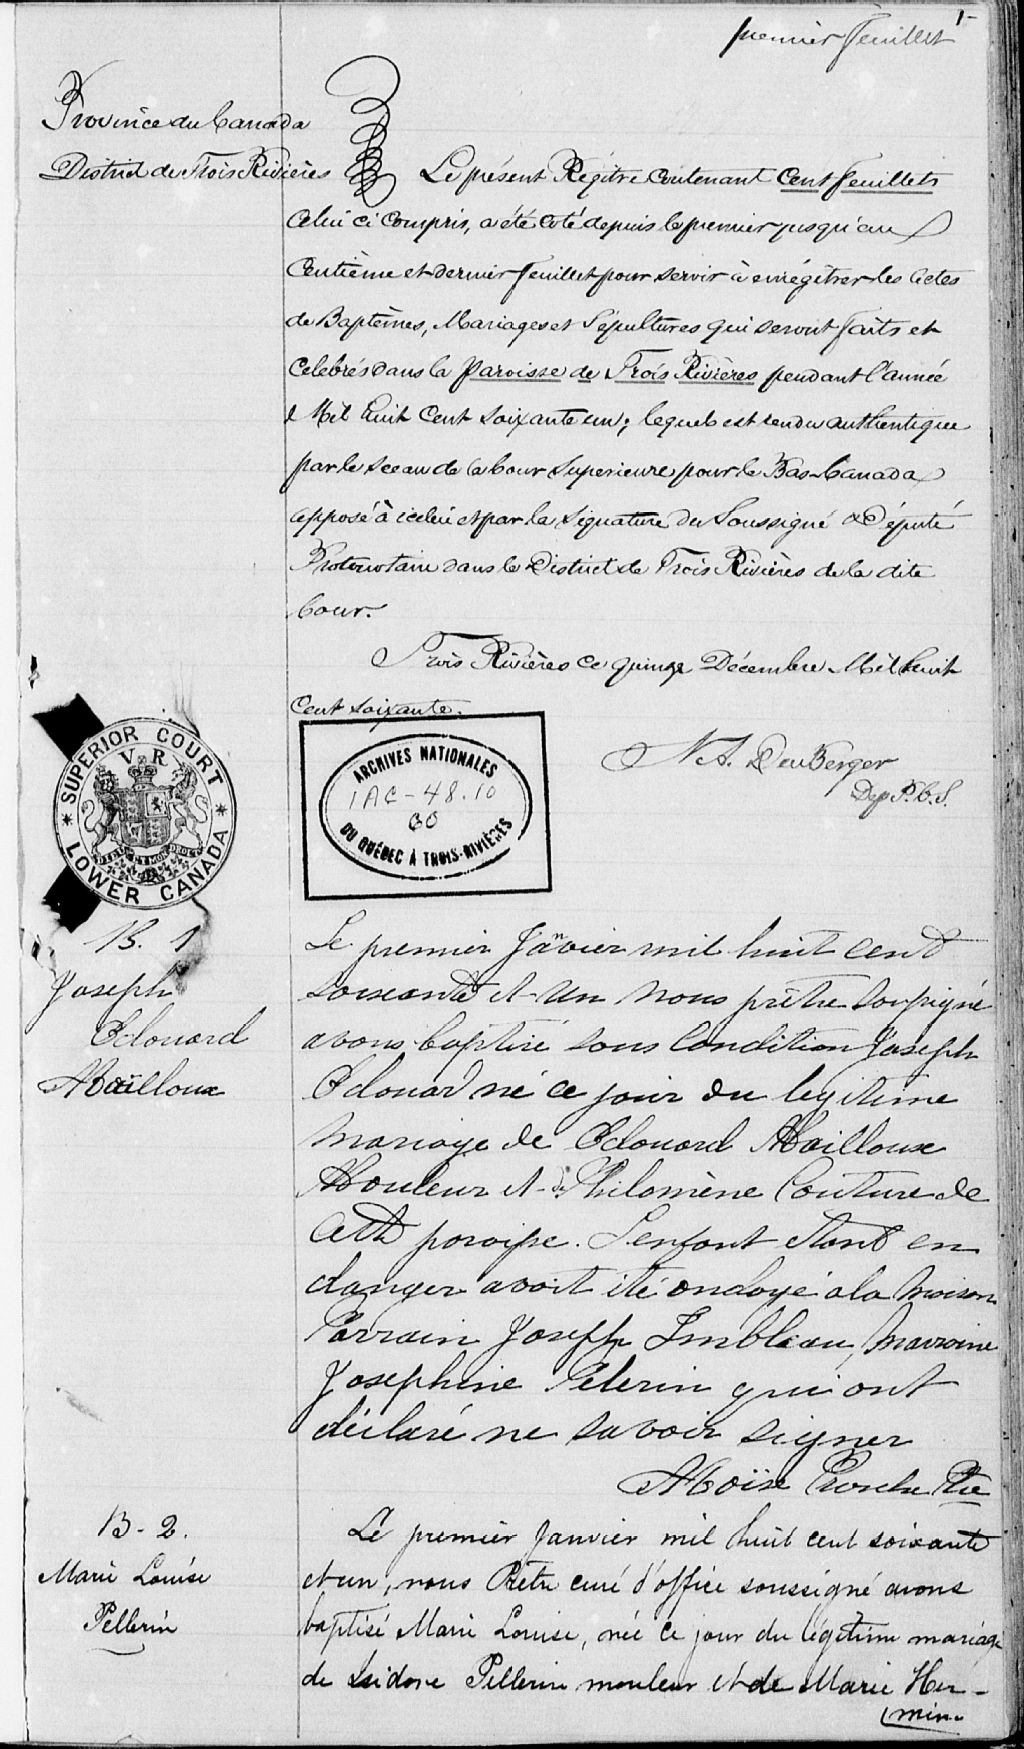 1-
premier feuillet
Province du Canada
District de Trois Rivières
Le présent Régitre contenant Cent feuillets
celui ci compris, a été coté depuis le premier jusqu'au
Centième et dernier feuillet pour servir à enrégitrer les Actes
de Baptêmes, Mariages et Sépultures qui seront faits et
Celebrés dans la Paroisse de Trois Rivières pendant l'année
Mil huit Cent soixante un; lequel est rendu authentique
par le sceau de la Cour Superieure pour le Bas-Canada
apposé à icelui et par la Signature du Soussigné Député
Protonotaire dans le District de Trois Rivières de la dite
Cour.
Trois Rivières ce quinze Décembre Mil huit
Cent soixante.
N. A. DeuBerger
Dep P.C.S.
SUPERIOR COURT
V R
DIEU ET MON DROIT
LOWER CANADA
ARCHIVES NATIONALES
1AC-48.10
60
DU QUÉBEC À TROIS-RIVIÈRES
B. 1
Joseph
Edouard
Mailloux
Le premier Janvier mil huit cent
soixante et un nous prêtre soussigné
avons baptisé sous condition Joseph
Edouard né ce jour du legitime
mariage de Edouard Mailloux
Mouleur et de Philomène Couture de
cette paroisse. L'enfant étant en
danger avait été ondoyé à la maison
Parrain Joseph Imbleau, marraine
Josephine Pelerin qui ont
déclaré ne savoir signer
Moïse Proulx Ptre
B-2.
Marie Louise
Pellerin
Le premier Janvier mil huit cent soixante
et un, nous Prêtre curé d'office soussigné avons
baptisé Marie Louise, née ce jour du légitime mariage
de Isidore Pellerin mouleur et de Marie Her-
mine